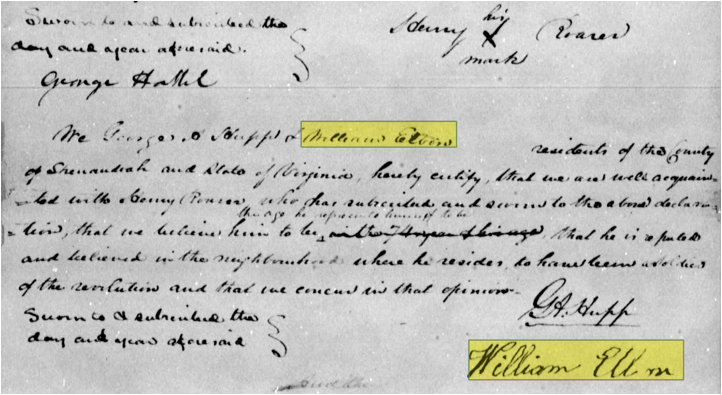 Sworn to and subscribed the his
day and year aforesaid. Henry X Roarer
mark
George Hottel
We George A Hupp & William Elbon residents of the County
of Shenandoah and State of Virginia, hereby certify, that we are well acquain-
ted with Henry Roarer, who has subscribed and sworn to the above declara-
the age he represents himself to be
tion, that we believe him to be that he is reputed
and believed in the neighbourhood where he resides, to have been a soldier
of the revolution and that we concur in that opinion-
Sworn to & subscribed the G. A. Hupp
day and year aforesaid
William Elbon